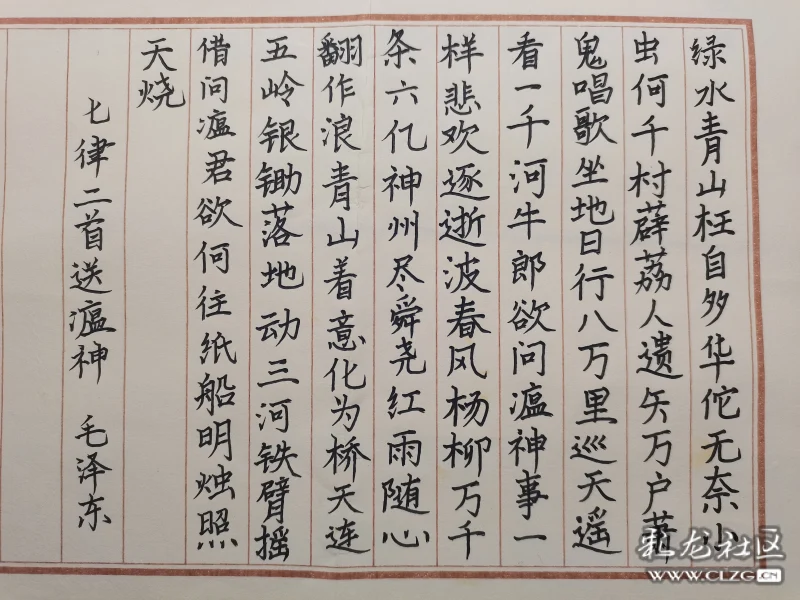 绿水青山枉自多华佗无奈小
虫何千村薜荔人遗矢万户萧
鬼唱歌坐地日行八万里巡天遥
看一千河牛郎欲问瘟神事一
样悲欢逐逝波春风杨柳万千
条六亿神州尽舜尧红雨随心
翻作浪青山着意化为桥天连
五岭银锄落地动三河铁臂摇
借问瘟君欲何往纸船明烛照
天烧
七律二首送瘟神 毛泽东
彩龙社区
WWW.CLZG.CN